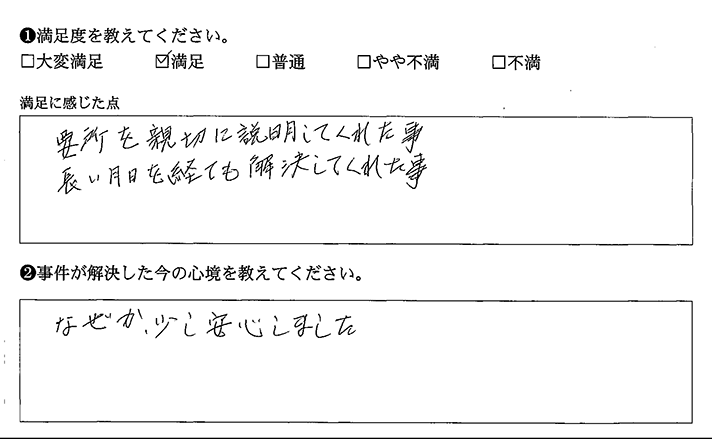 ❶満足度を教えてください。
□大変満足 ☑満足 □普通 □やや不満 □不満
満足に感じた点
要所を親切に説明してくれた事
長い月日を経ても解決してくれた事
❷事件が解決した今の心境を教えてください。
なぜか、少し安心しました